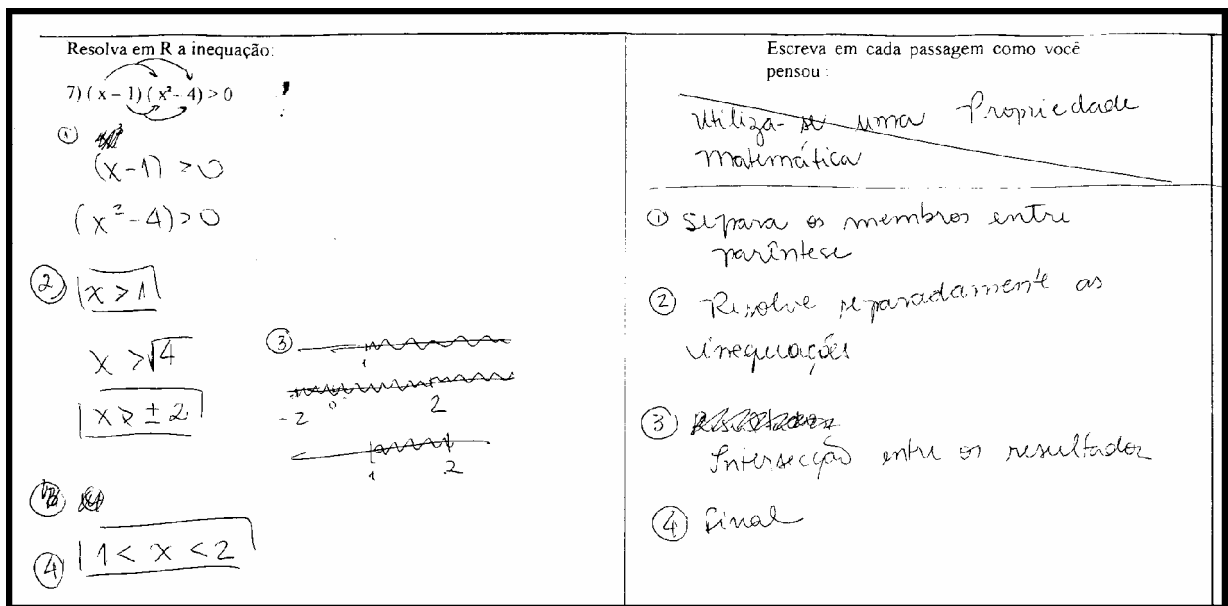 Resolva em R a inequação:
7) ( x – 1) ( x² - 4) > 0
①
(x-1) > 0
(x² - 4) > 0
② x > 1
x > √4
x > ± 2
③
1
-2 0 2
1 2
④ 1 < x < 2
Escreva em cada passagem como você
pensou :
Utiliza-se uma Propriedade
Matemática
① Separa os membros entre
parêntese
② Resolve separadamente as
inequações
③
Intersecção entre os resultados
④ Final